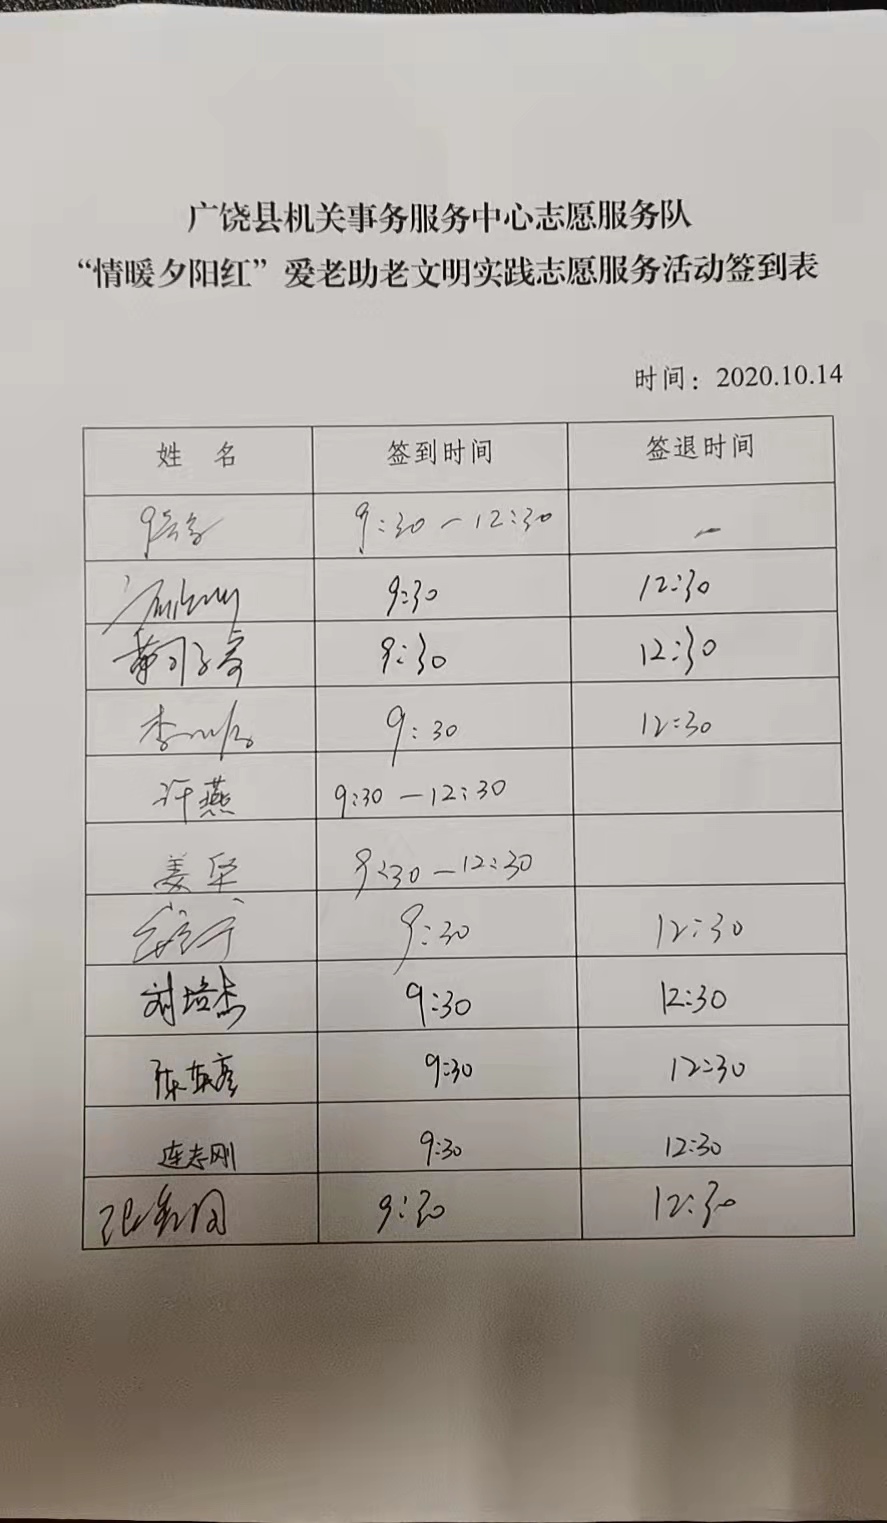 广饶县机关事务服务中心志愿服务队
“情暖夕阳红”爱老助老文明实践志愿服务活动签到表
时间：2020.10.14
姓 名 签到时间 签退时间
9:30－12:30 －
9:30 12:30
9:30 12:30
李 9:30 12:30
许燕 9:30－12:30
姜坚 9:30－12:30
9:30 12:30
刘培杰 9:30 12:30
陈东彦 9:30 12:30
连志刚 9:30 12:30
张 9:30 12:30